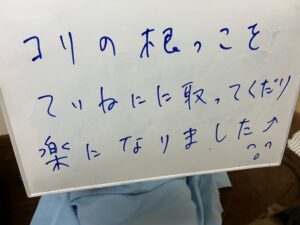 コリの根っこを
ていねにに取ってくだり
楽になりました↑